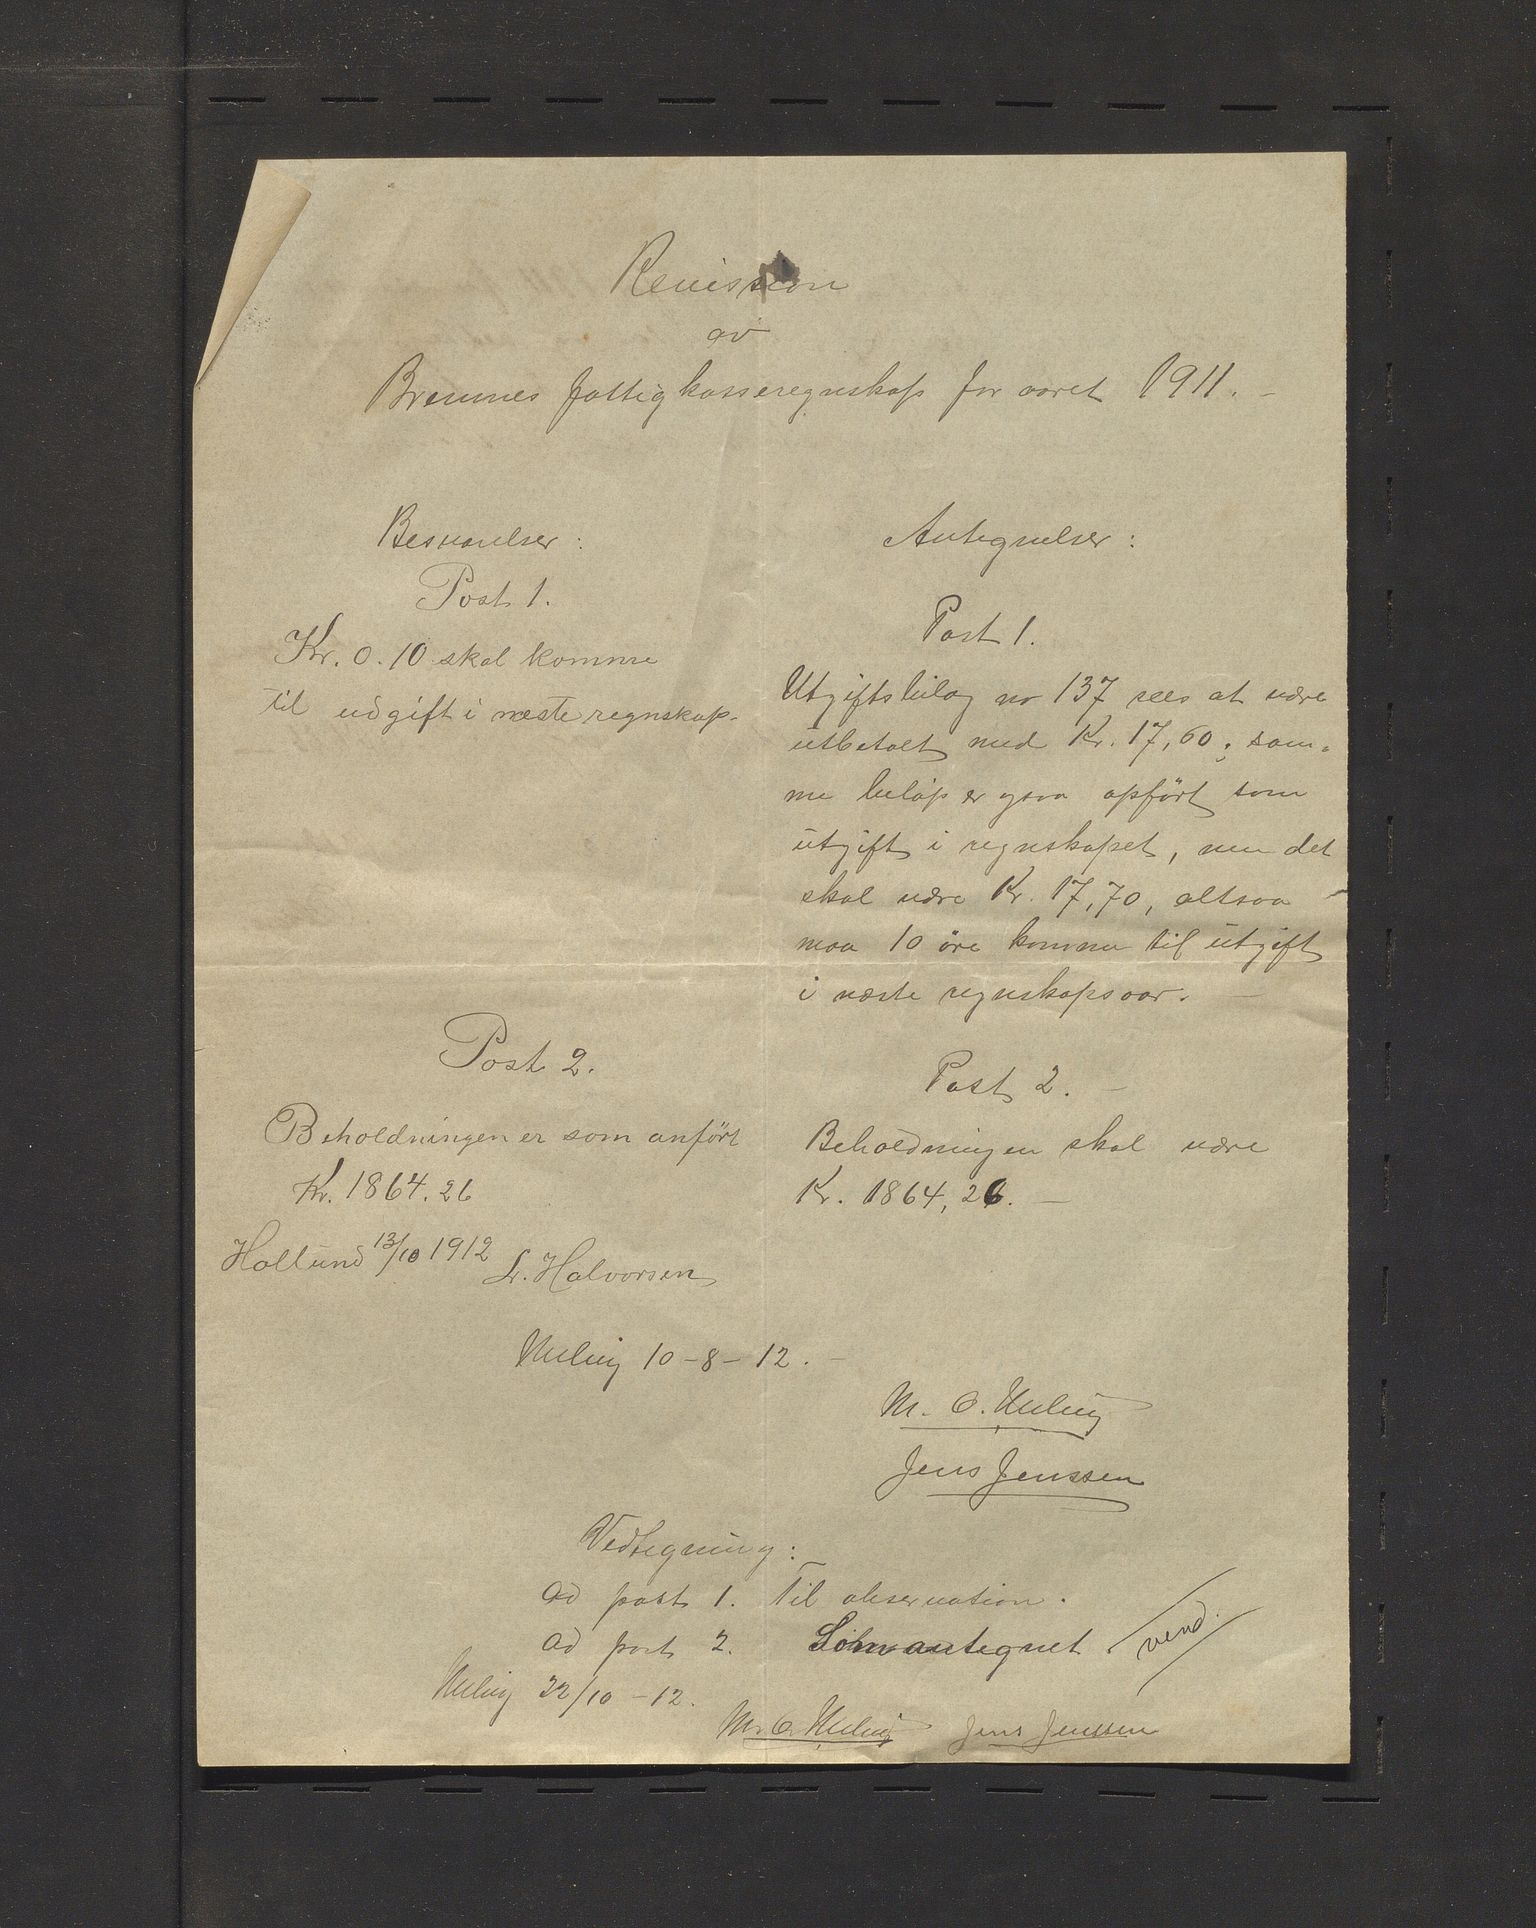 Revision
av
Bremnes fattigkasseregnskap for aaret 1911. -
Besvarelser:
Post 1.
Kr. 0.10 skal komme
til udgift i næste regnskap.
Post 2.
Beholdningen er som anført
Kr. 1864.26
Hollund 13/10 1912 L. Halvorsen
Antegnelser:
Post 1.
Utgiftsbilag no 137 sees at være
utbetalt med Kr. 17,60; sam-
me beløp er ogsaa opført som
utgift i regnskapet, men det
skal være Kr. 17,70, altsaa
maa 10 øre komme til utgift
i næste regnskapsaar. -
Post 2. -
Beholdningen skal være
Kr. 1864,26. -
Meling 10-8-12. -
M. O. Meling
Jens Jenssen
Vedtegning:
ad post 1. Til observation.
ad post 2. Som antegnet. vend.
Meling 22/10-12.
M. O. Meling Jens Jenssen